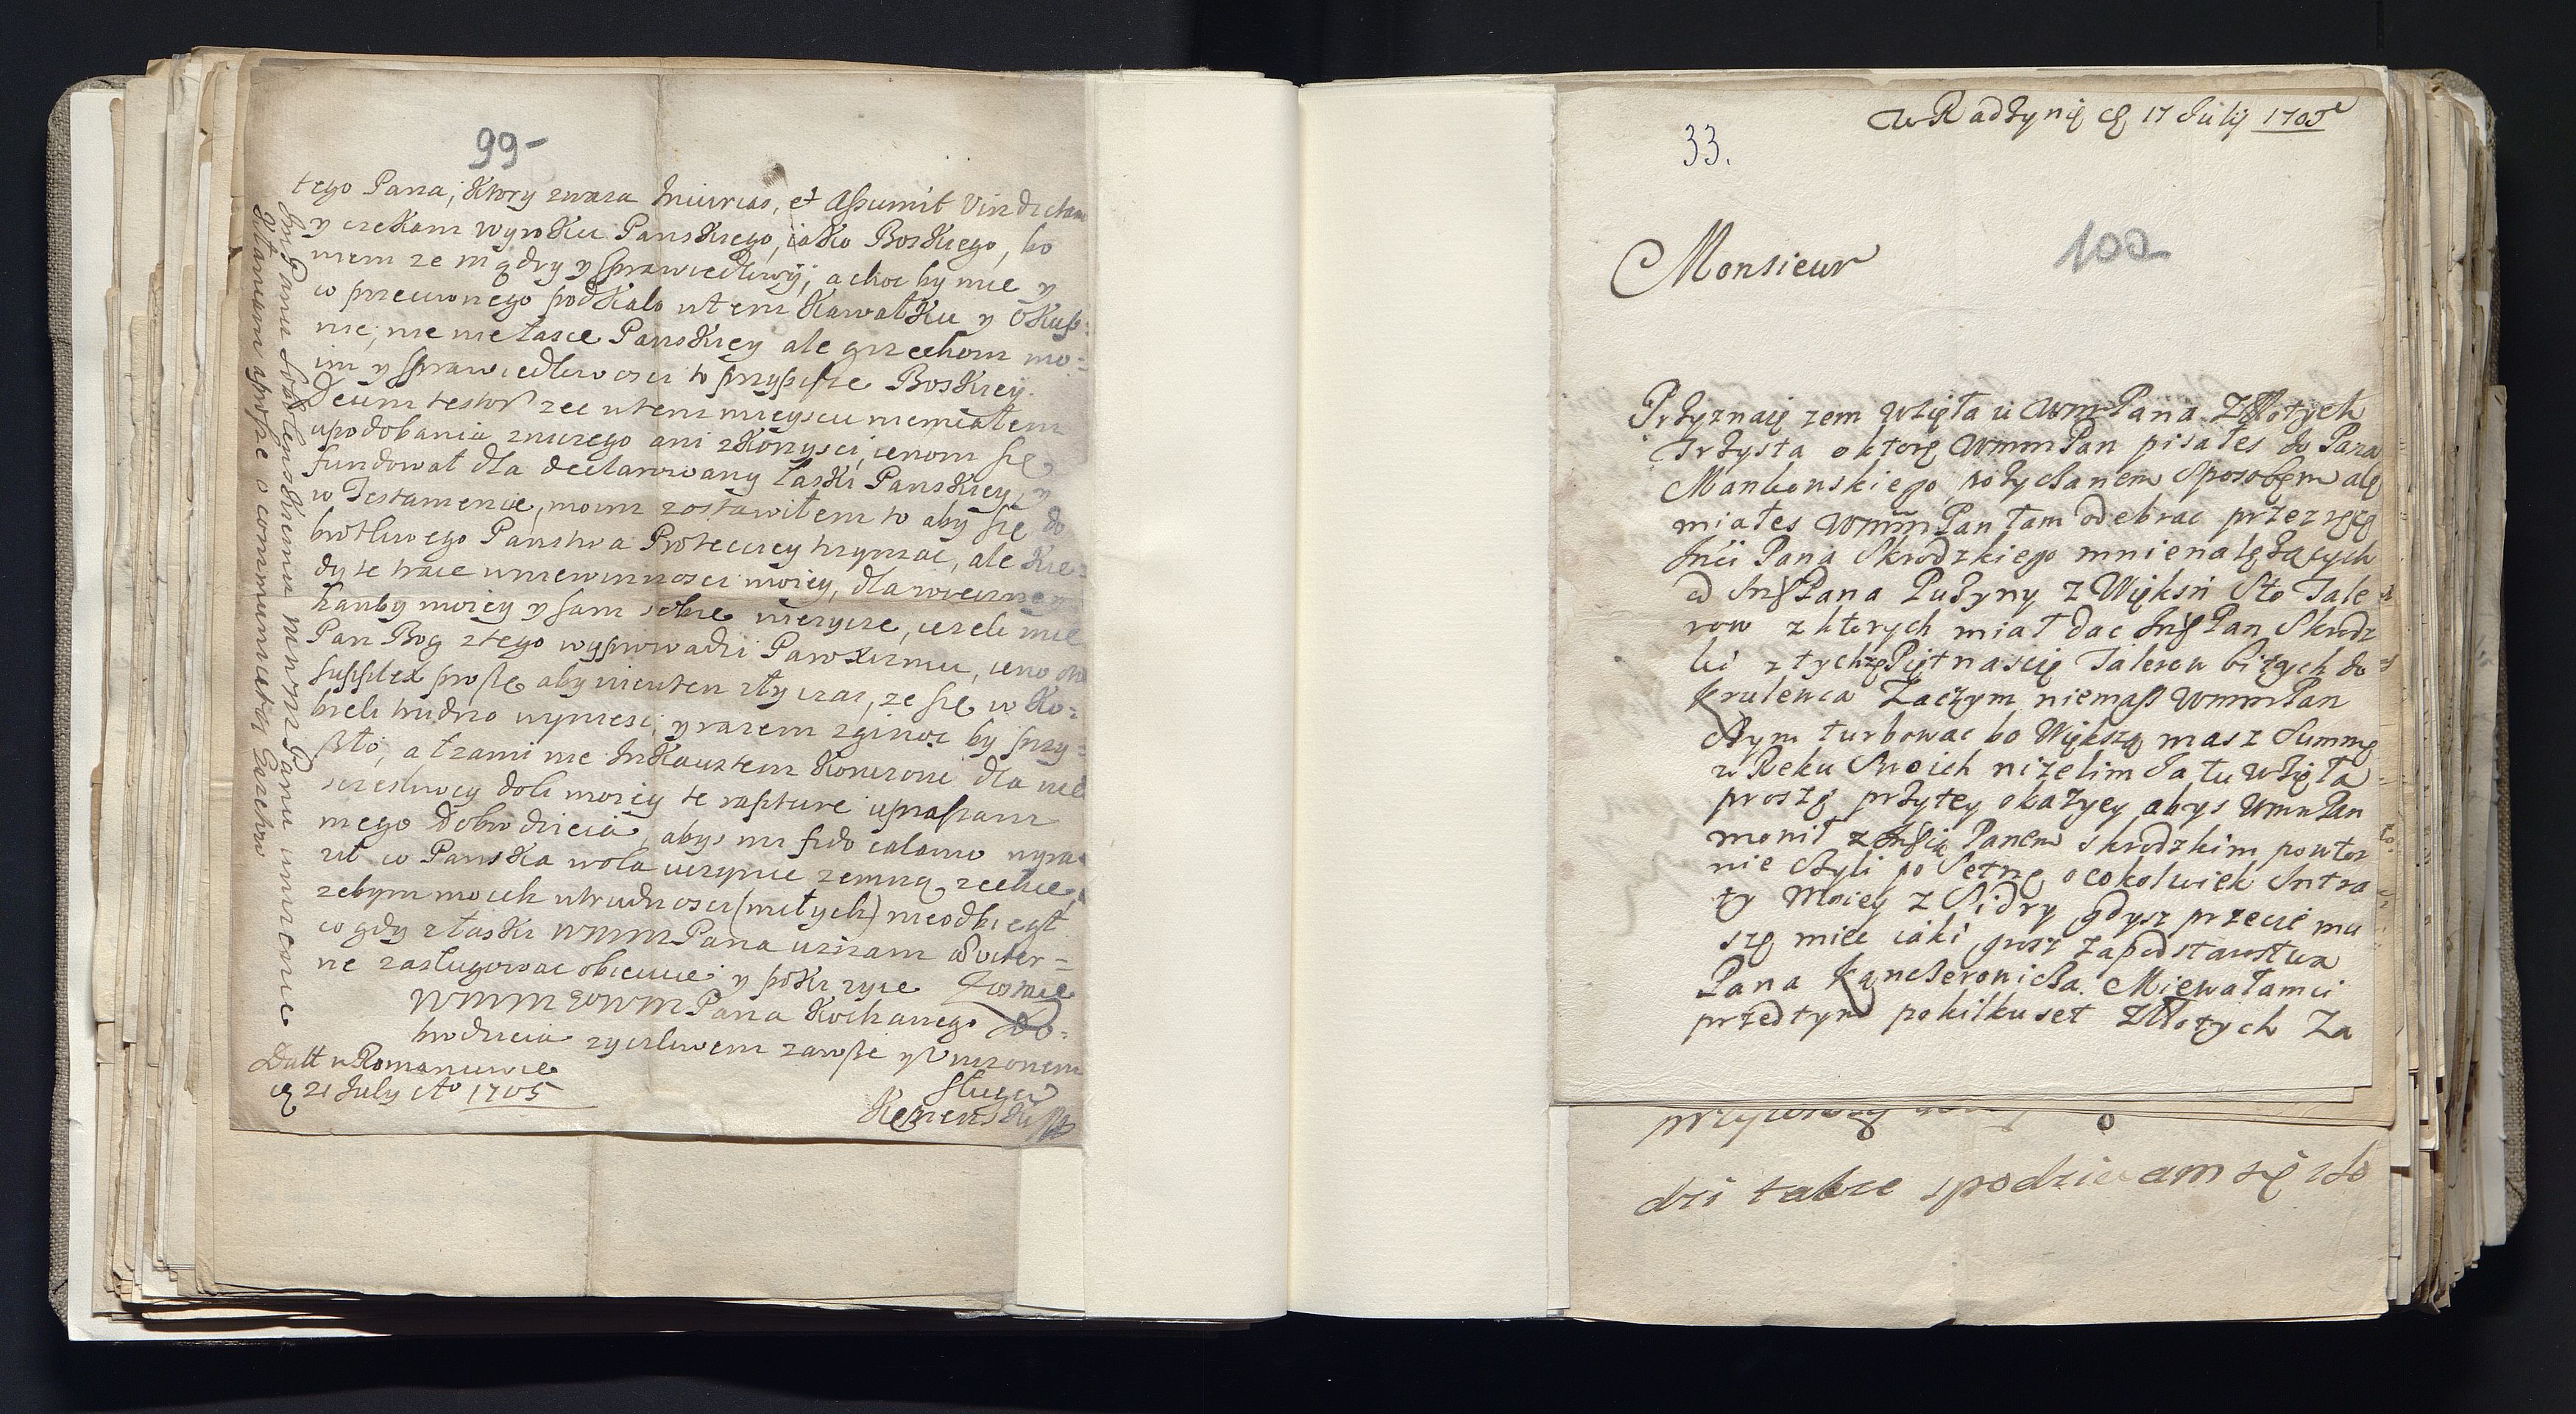 99-
tego Pana, Ktory zwaza Iniurias, et Assumit Vindictam
y czekam wyroKu PansKiego, iako BosKiego, bo
wiem ze mądry y sprawiedliwy, a choc by mie y
co przeciwnego podKalo wtem KawalKu y
nie, nie nie lasce PansKiey ale grzechom mo=
im y sprawiedliwosci to przypisze BosKiey.
Deum testor zee wtem mieyscu niemialem
upodobania zniczego ani zKorzysci, ienom się
fundowal dla declarowany lasKi PansKiey, y
w Testamencie moim zostawilem to aby się do
brotliwego Panstwa Protectiey trzymac, ale Kie=
dy te trace wniewinnosci moiey, dla wieczney
hanby moiey y sam sobie nieżycze, iezeli mie
Pan Bog ztego wyprowadzi Paroxizmu, ieno
supplex prosze aby nie wten zly czas, ze się w Ko=
bieli trudno wyniesc, y razem zginąc by przy=
szło, a łzami nie InKaustem Koncząc dla nie
szczesliwey doli moiey te rapture upraszam
mego Dobrodzieia, abys mi fido calamo wyra=
zil co PansKa wola uczynic zemną zechce,
zebym moich wtrudnosci (milych) nieodbiegl
co gdy zlasKi WMM Pana uznam
ne zaslugowac obiecuie, y poKi zyie Zostaie
WMM Pana Kochanego Do=
brodzieia zyczliwem zawsze y Unizonem
Sluga
Datt w Romanowie
21 July Ao 1705
33.
w Radzynię 17 Julij 1705
100
Monsieur
Przyznaię zem Wzięła u WmPana Złłotych
Trzysta o ktorę WmmPan pisałes do Pana
Mankowskiego, pozyczanem Sposobem alę
miałes WmmPan tam odebrac przez ręcę
Imci Pana Skrodzkiego mnie nalęzących
od Pana Puzyny z Więksy Sto Tale
row z ktorych miał dac Pan Skrodz
ki z tychzę Piętnascię Talerow bitych do
Krulewca Zaczym niemasz WmmPan
Czym turbowac bo Większą masz Summę
w Reku Swoich niżelim Ja tu Wzięła
proszę przytey okazyey abys WmmPan
monil z Panem Skrodzkim powtor
nie czyli po Setnę ocokolwiek Intra
ty Moiey z Sidry gdysz przecię mu
szę miec iaki zapodstarostwa
Pana Kancleronicza. Miewałamci
przedtym po kilkuset Złłotych Za
dzi takze spodziewam się